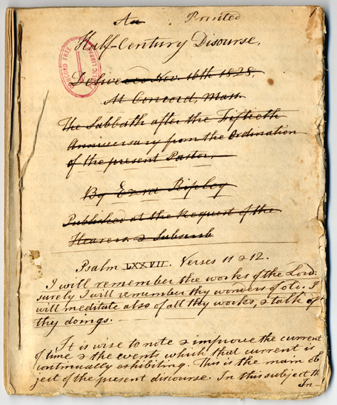 An Printed
Half-Century Discourse,
Delivered Nov. 16th 1828,
At Concord, Mass.
The Sabbath after the Fiftieth
Anniversary from the Ordination
of the present Pastor,
By Ezra Ripley
Published at the Request of the
Hearers & Subscrib
Psalm LXXVII. Verses 11 & 12.
I will remember the works of the Lord:
surely I will remember thy wonders of old. I
will meditate also of all thy works, & talk of
thy doings.
It is wise to note & improve the current
of time & the events which that current is
continually exhibiting. This is the main ob-
ject of the present discourse. In this subject th
In